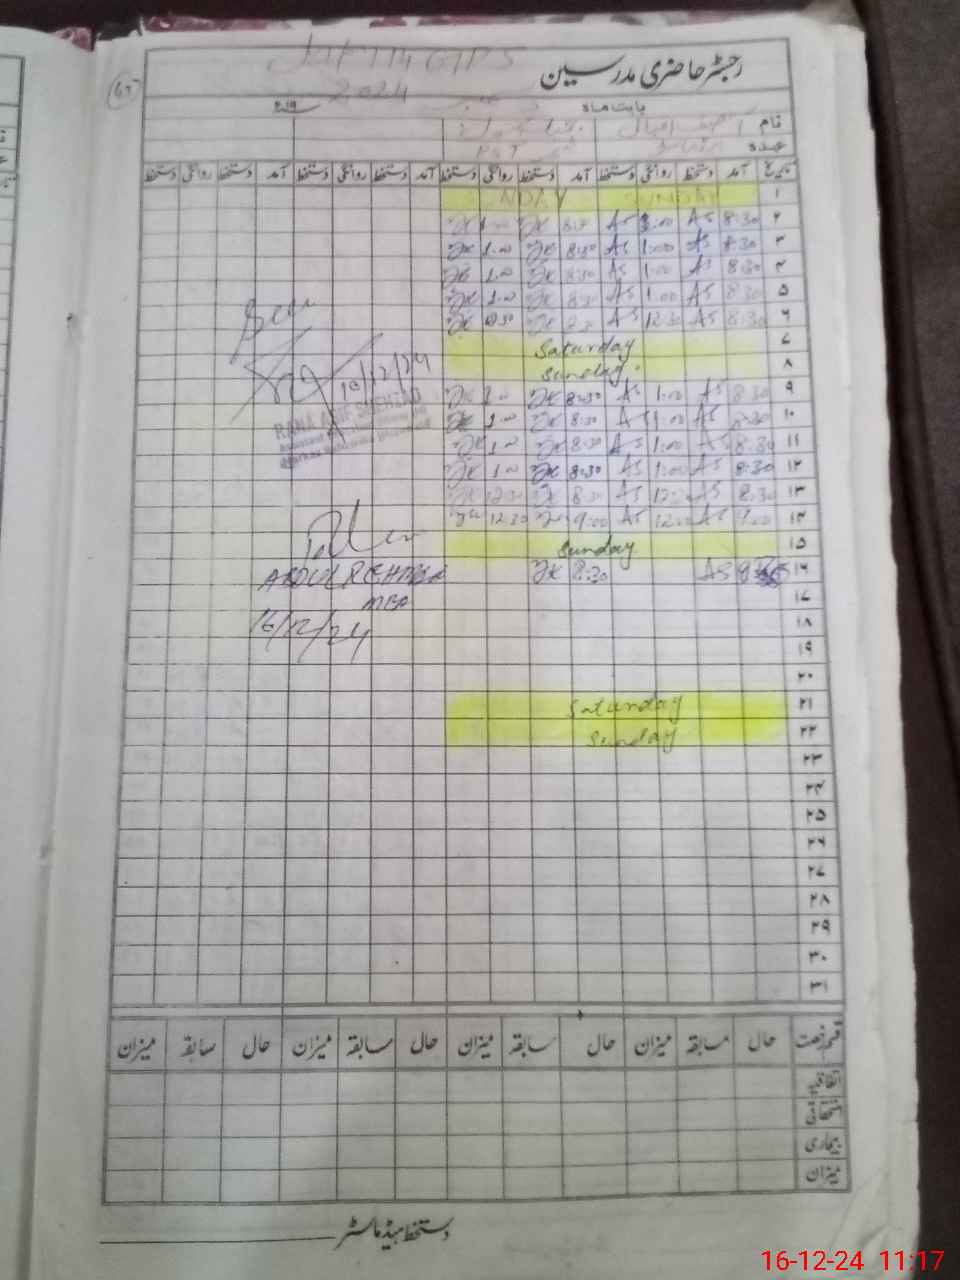 رجسٹر حاضری مدرسین
2024
بابت ماہ
نام
عہدہ
تاریخ آمد دستخط روانگی دستخط آمد دستخط روانگی دستخط آمد دستخط روانگی دستخط آمد دستخط روانگی دستخط
۱ SUNDAY
۲ 8:30 AS AS
۳ 8:30 AS 1:00 AS 8:30 JK 1.00 JK
۴ 8:30 AS 1:00 AS 8:30 JK 1.00 JK
۵ 8:30 AS 1:00 AS 8:30 JK 1.00 JK
۶ 8:30 AS 12:30 AS JK JK
۷ Saturday
۸ Sunday.
۹ 8:30 AS 1:00 AS 8:30 JK 1.00 JK
۱۰ 8:30 AS 1:00 AS 8:30 JK 1.00 JK
۱۱ 8:30 AS 1:00 AS 8:30 JK 1.00 JK
۱۲ 8:30 AS 1:00 AS 8:30 JK 1.00 JK
۱۳ 8:30 AS AS 8:30 JK 12:30 JK
۱۴ 9:00 AS AS 9:00 JK 12:30 JK
۱۵ Sunday
۱۶ AS 8:30 JK
۱۷
۱۸
۱۹
۲۰
۲۱ Saturday
۲۲ Sunday
۲۳
۲۴
۲۵
۲۶
۲۷
۲۸
۲۹
۳۰
۳۱
Seen
10/12/24
RANA ASIF SHEHZAD
ABDUL REHMAN
16/12/24
قسم رخصت حال سابقہ میزان حال سابقہ میزان حال سابقہ میزان حال سابقہ میزان
اتفاقیہ
استحقاقی
بیماری
میزان
دستخط ہیڈ ماسٹر
16-12-24 11:17